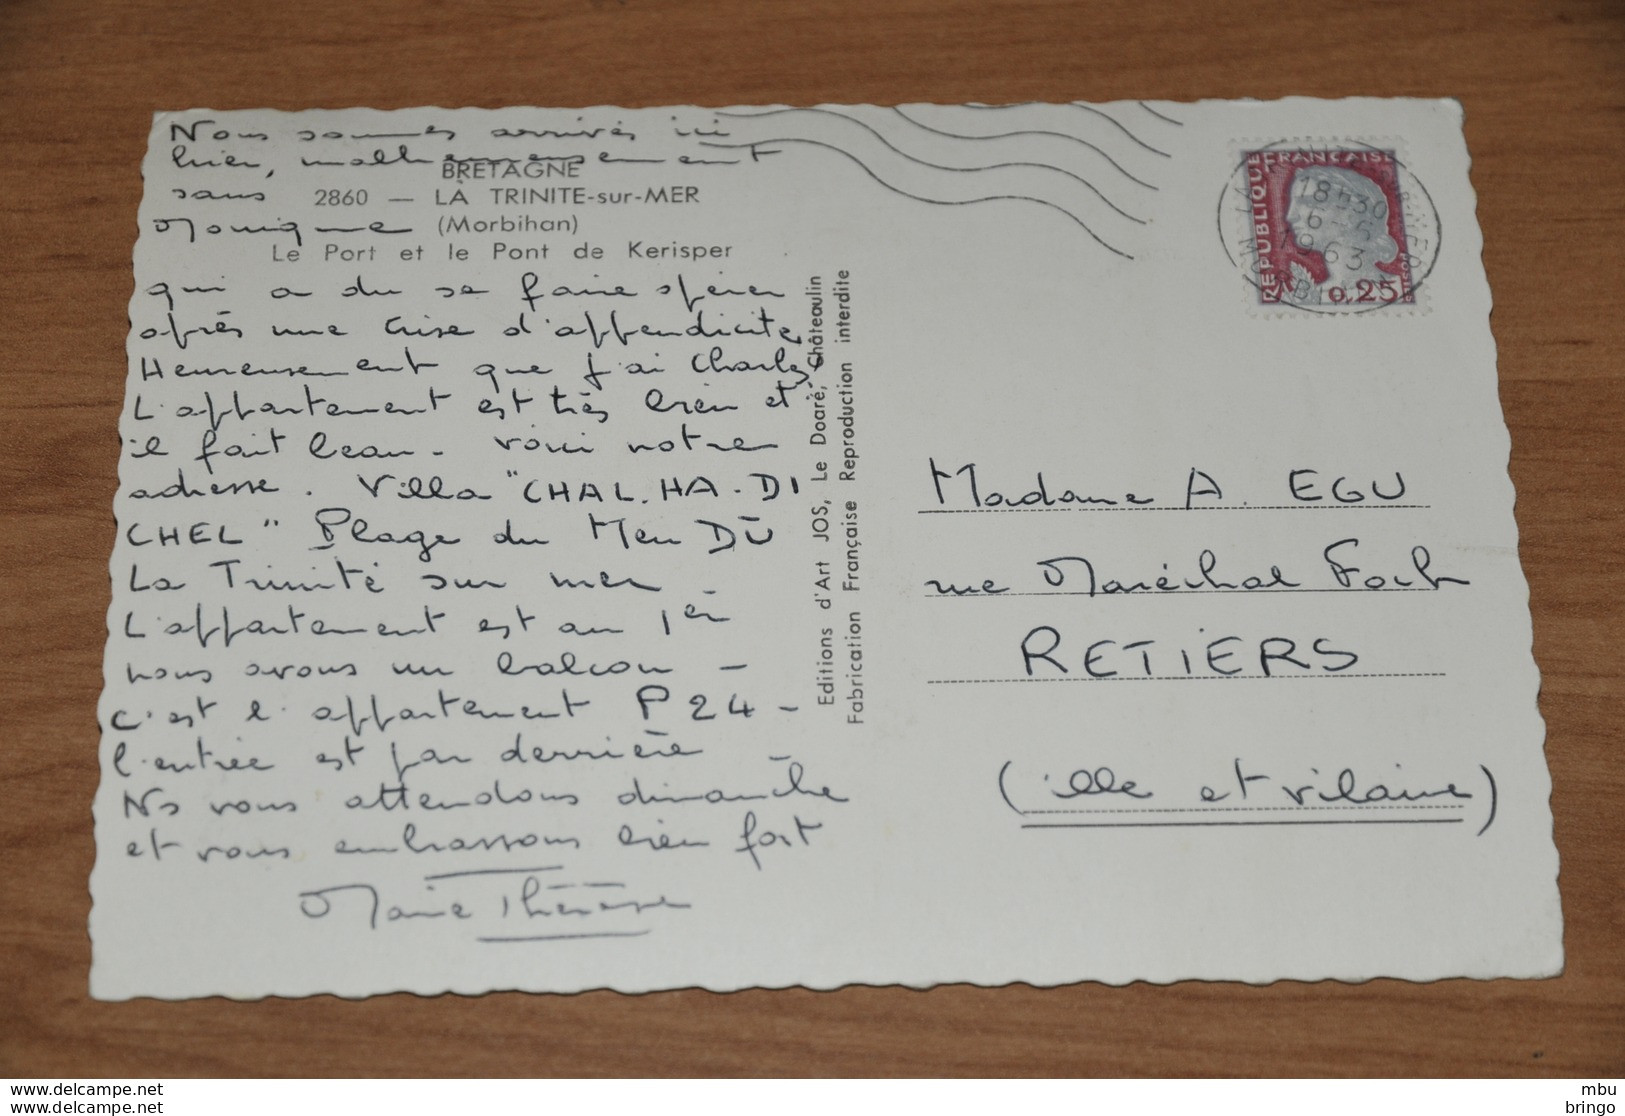 Nous sommes arrivés ici
hier, malheureusement
BRETAGNE
sans
2860 — LA TRINITE-sur-MER
Monique
(Morbihan)
Le Port et le Pont de Kerisper
qui a du se faire opérer
après une crise d'appendicite
Heureusement que j'ai Charles
L'appartement est très bien et
il fait beau. Voici notre
adresse. Villa "CHAL.HA-DI
CHEL" Plage du Men DŪ
La Trinité sur mer
L'appartement est au 1er
nous avons un balcon -
C'est l'appartement P 24 -
l'entrée est par derrière
Ns vous attendons dimanche
et vous embrassons bien fort
Marie Thérèse
Editions d'Art JOS, Le Doaré, Châteaulin
Fabrication Française Reproduction interdite
REPUBLIQUE FRANÇAISE
POSTES
0,25
18H30
6-
1963
MORBIHAN
Madame A. EGU
rue Maréchal Foch
RETIERS
(ille et vilaine)
www.delcampe.net
www.delcampe.net
mbu
bringo